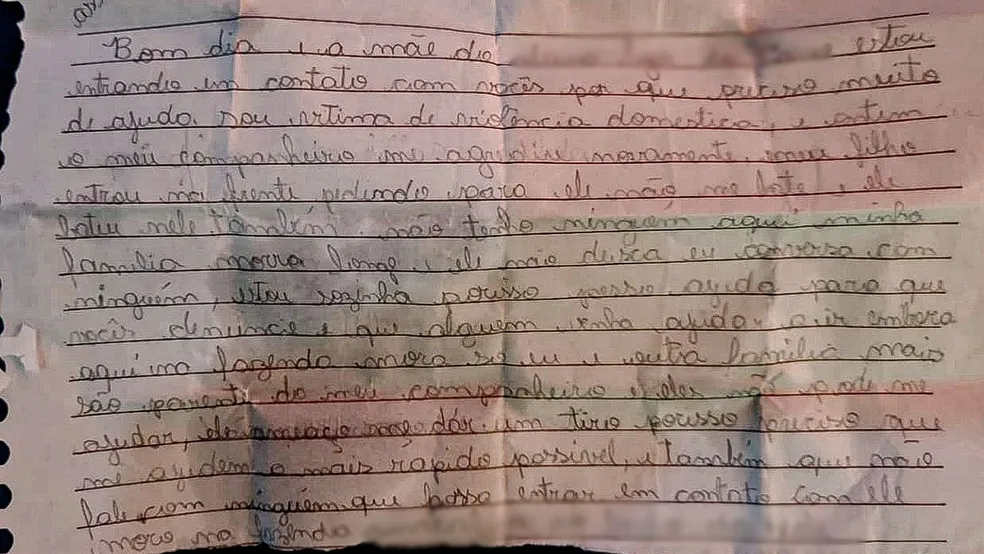 Bom dia e a mãe do
estou
entrando um contato com vocês por que preciso muito
de ajuda. sou vitima de violência domestica, e ontem
o meu companheiro me agrediu novamente, meu filho
entrou na frente pedindo para ele não me bate, e ele
bateu nele também. não tenho ninguém aqui minha
família morra longe e ele não deixa eu conversa com
ninguém, estou sozinha ajuda para que
vocês denuncie e que alguem venha ajuda a ir embora
aqui na fazenda mora so eu e outra família mais
são parenti do meu companheiro e eles não pode me
ajudar, ele dár um tiro preciso que
me ajudem o mais rápido possivel, e também que não
fale com ninguém que possa entrar em contato com ele
moro na fazenda